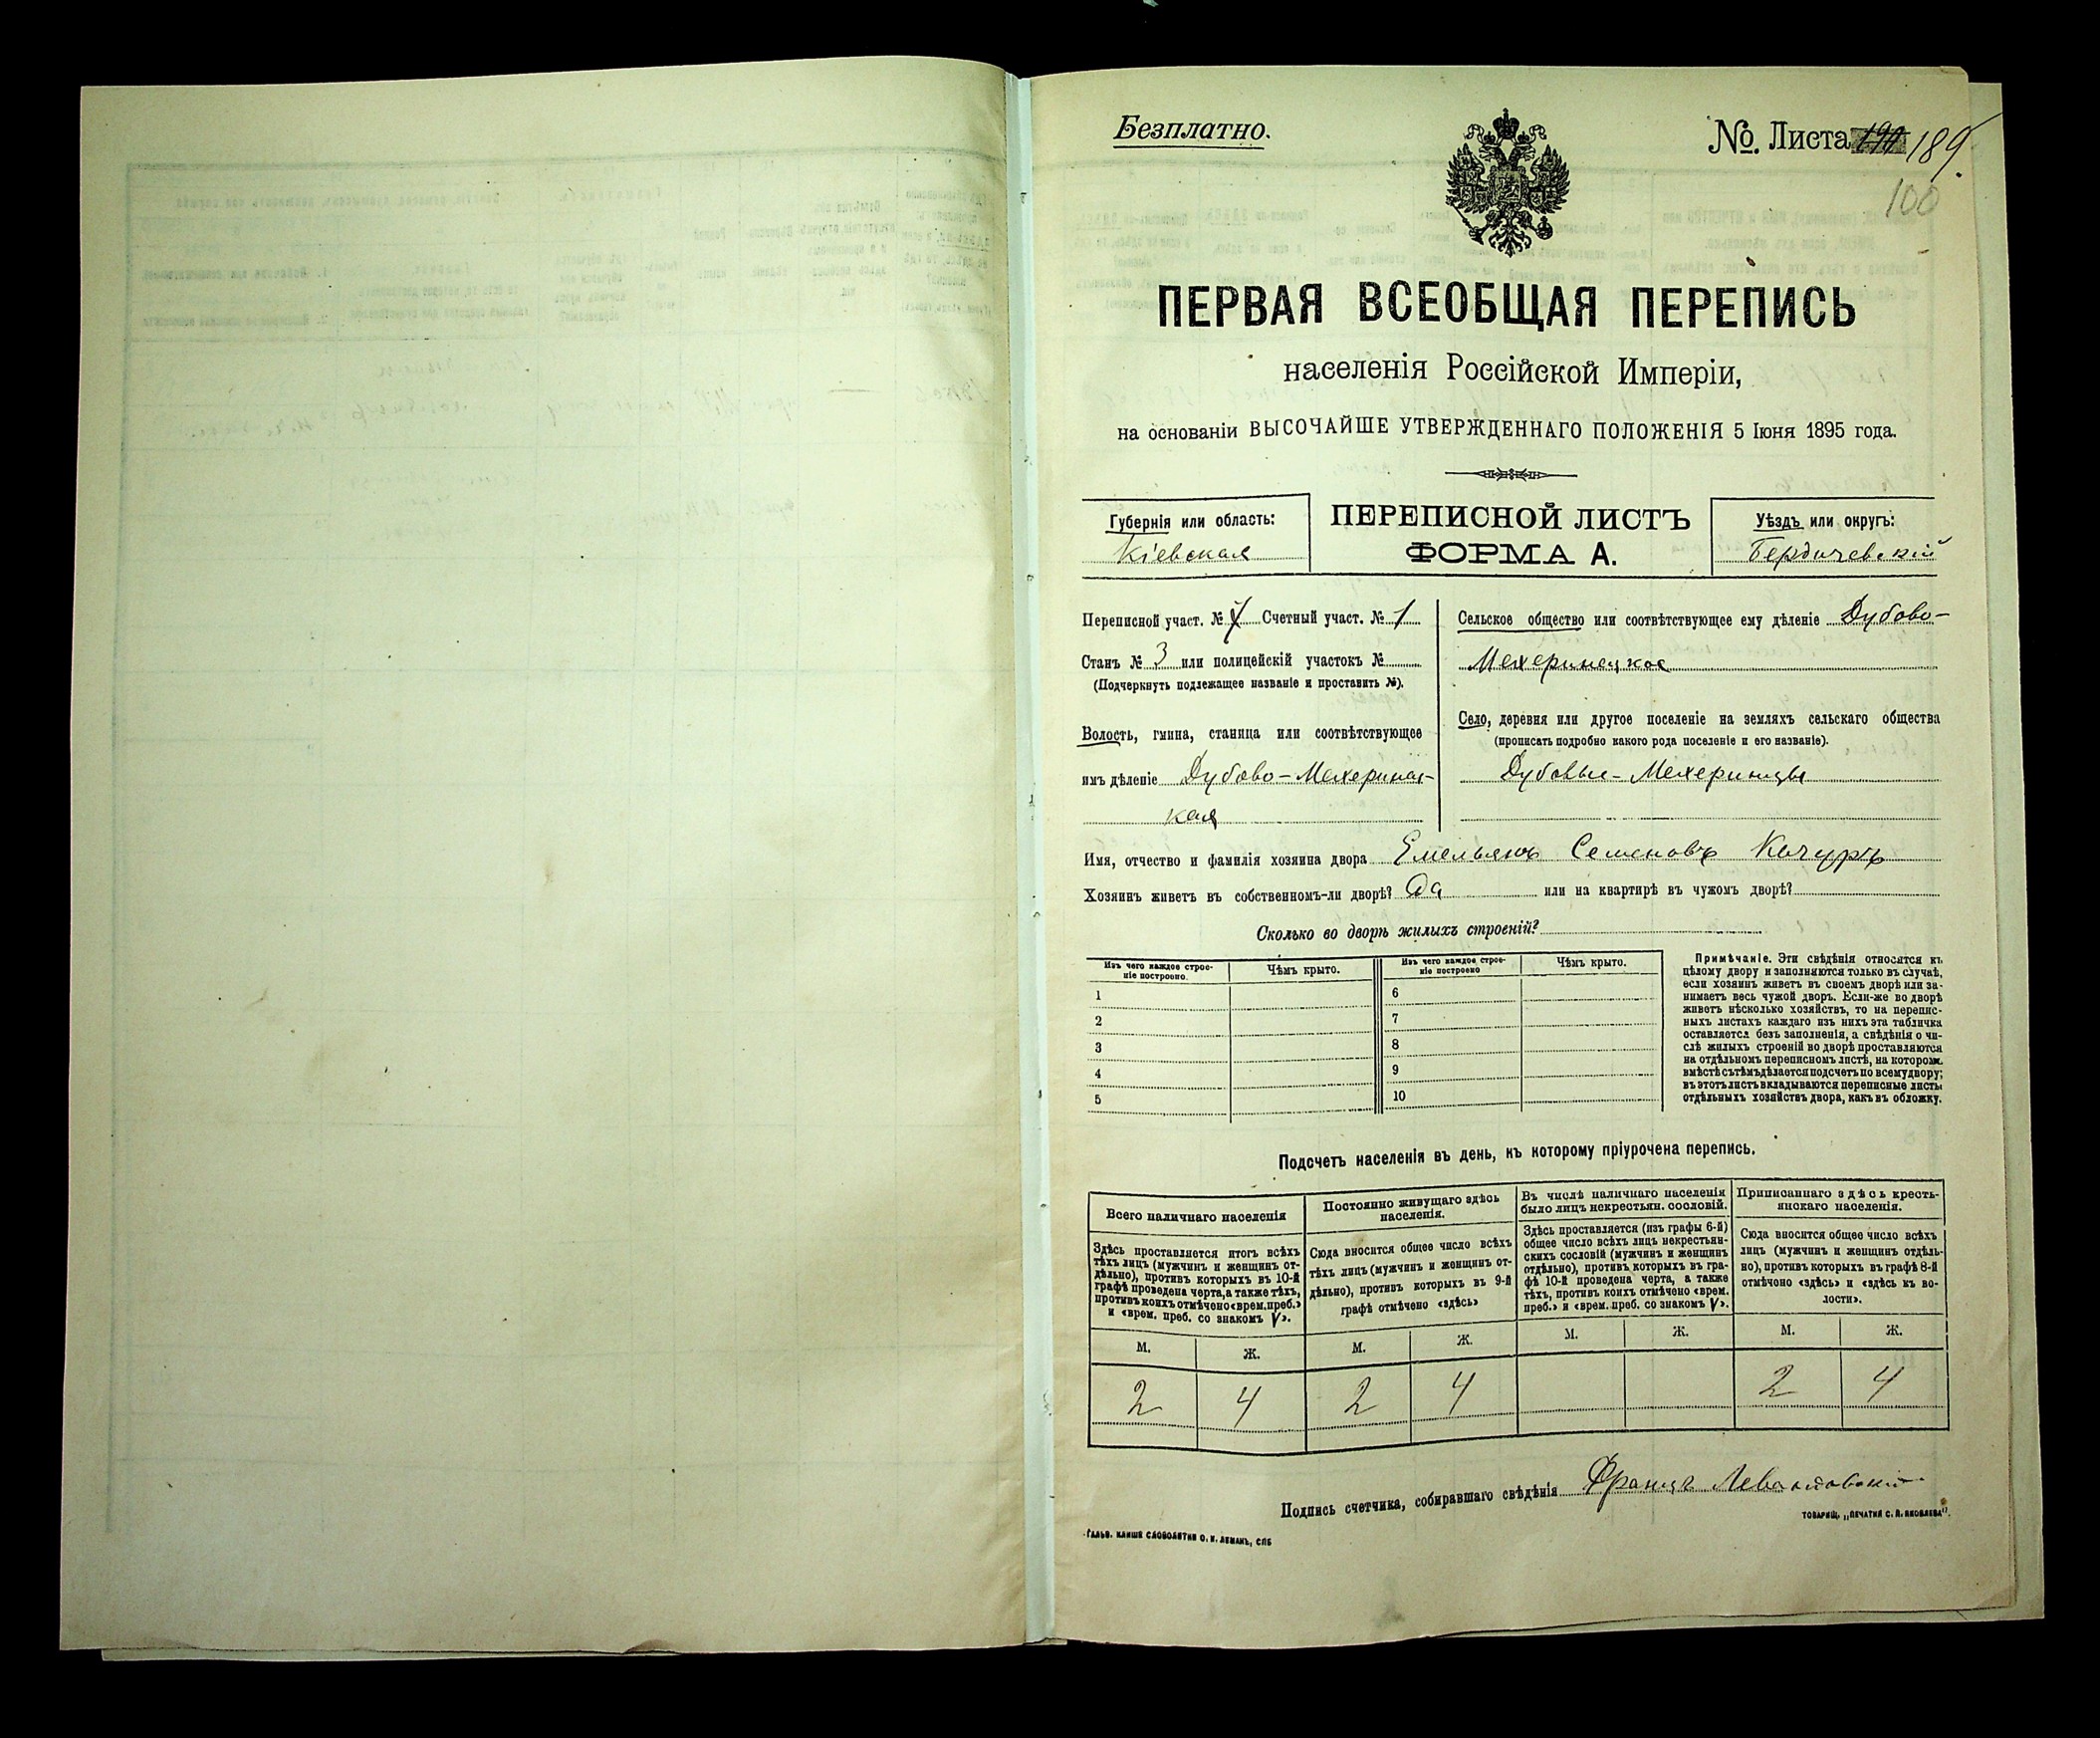 Безплатно.
No. Листа 189.
100
ПЕРВАЯ ВСЕОБЩАЯ ПЕРЕПИСЬ
населенія Россійской Имперіи,
на основаніи ВЫСОЧАЙШЕ УТВЕРЖДЕННАГО ПОЛОЖЕНІЯ 5 Іюня 1895 года.
Губернія или область:
Кіевская
ПЕРЕПИСНОЙ ЛИСТЪ
ФОРМА А.
Уѣздъ или округъ:
Бердичевскій
Переписной участ. № Счетный участ. № 1
Станъ № 3 или полицейскій участокъ №
(Подчеркнуть подлежащее названіе и проставить №).
Волость, гмина, станица или соотвѣтствующее
имъ дѣленіе Дубово-Мехеринец-
кая
Сельское общество или соотвѣтствующее ему дѣленіе Дубово-
Мехеринецкое
Село, деревня или другое поселеніе на земляхъ сельскаго общества
(прописать подробно какого рода поселеніе и его названіе).
Дубовые-Мехеринцы
Имя, отчество и фамилія хозяина двора Емельянъ Семеновъ Качуръ
Хозяинъ живетъ въ собственномъ-ли дворѣ? Да или на квартирѣ въ чужомъ дворѣ?
Сколько во дворѣ жилыхъ строеній?
Изъ чего каждое строе-
ніе построено.
Чѣмъ крыто.
Изъ чего каждое строе-
ніе построено
Чѣмъ крыто.
1
6
2
7
3
8
4
9
5
10
Примѣчаніе. Эти свѣдѣнія относятся къ
цѣлому двору и заполняются только въ случаѣ,
если хозяинъ живетъ въ своемъ дворѣ или за-
нимаетъ весь чужой дворъ. Если-же во дворѣ
живетъ нѣсколько хозяйствъ, то на перепис-
ныхъ листахъ каждаго изъ нихъ эта табличка
оставляется безъ заполненія, а свѣдѣнія о чи-
слѣ жилыхъ строеній во дворѣ проставляются
на отдѣльномъ переписномъ листѣ, на которомъ
вмѣстѣ съ тѣмъ дѣлается подсчетъ по всему двору;
въ этотъ листъ вкладываются переписные листы
отдѣльныхъ хозяйствъ двора, какъ въ обложку.
Подсчетъ населенія въ день, къ которому пріурочена перепись.
Всего наличнаго населенія
Здѣсь проставляется итогъ всѣхъ
тѣхъ лицъ (мужчинъ и женщинъ от-
дѣльно), противъ которыхъ въ 10-й
графѣ проведена черта, а также тѣхъ,
противъ коихъ отмѣчено «врем. преб.»
и «врем. преб. со знакомъ V».
Постоянно живущаго здѣсь
населенія.
Сюда вносится общее число всѣхъ
тѣхъ лицъ (мужчинъ и женщинъ от-
дѣльно), противъ которыхъ въ 9-й
графѣ отмѣчено «здѣсь»
Въ числѣ наличнаго населенія
было лицъ некрестьян. сословій.
Здѣсь проставляется (изъ графы 6-й)
общее число всѣхъ лицъ некрестьян-
скихъ сословій (мужчинъ и женщинъ
отдѣльно), противъ которыхъ въ гра-
фѣ 10-й проведена черта, а также
тѣхъ, противъ коихъ отмѣчено «врем.
преб.» и «врем. преб. со знакомъ V».
Приписаннаго здѣсь кресть-
янскаго населенія.
Сюда вносится общее число всѣхъ
лицъ (мужчинъ и женщинъ отдѣль-
но), противъ которыхъ въ графѣ 8-й
отмѣчено «здѣсь» и «здѣсь къ во-
лости».
М. Ж. М. Ж. М. Ж. М. Ж.
2 4 2 4 2 4
Подпись счетчика, собиравшаго свѣдѣнія Францъ
ГАЛЬВ. КЛИШЕ СЛОВОЛИТНИ О. И. ЛЕМАНЪ, СПБ
ТОВАРИЩ. „ПЕЧАТНЯ С. П. ЯКОВЛЕВА".